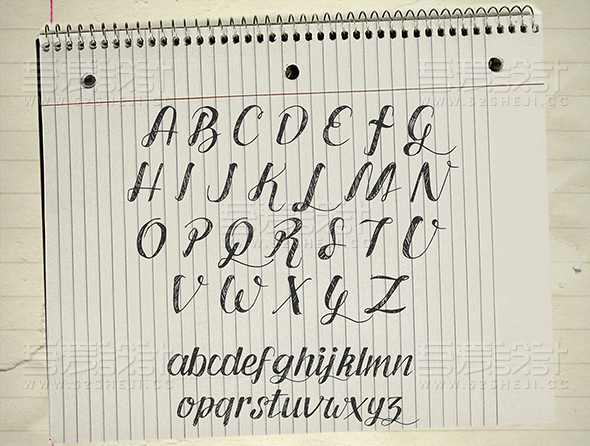 A B C D E F G
H I J K L M N
O P Q R S T U
V W X Y Z
abcdefghijklmn
opqrstuvwxyz
WWW.52SHEJI.CC